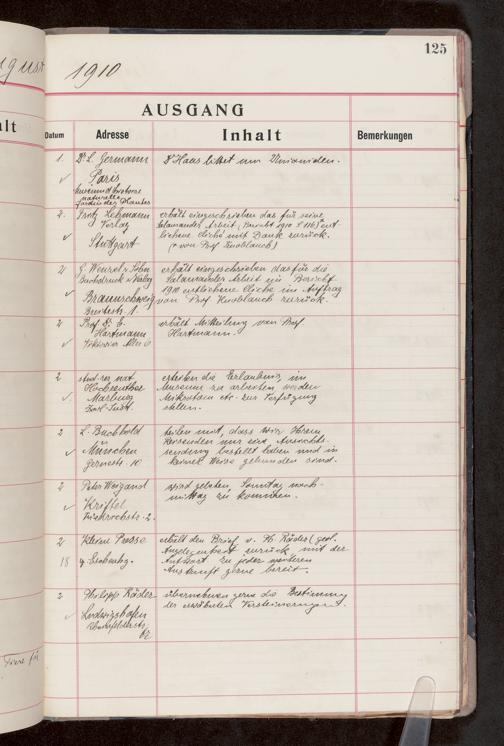 125
1910
AUSGANG
Datum
Adresse
Inhalt
Bemerkungen
1. Dr L. Germann
Paris
Museum d'histoire
naturelle
Jardin des Plantes
Dr Haas bittet um Unioniden.
2. Fritz Lehmann
Verlag
Stuttgart
erhält eingeschrieben das für seine
Salamander Arbeit (Bericht 1910 S 116) ent-
liehene Cliché mit Dank zurück.
(v. von Prof Knoblauch)
2 G. Wenzel & Sohn
Buchdruck & Verlag
Braunschweig
Breitestr. 1.
erhält eingeschrieben das für die
Salamander Arbeit im Bericht
1910 entliehene Cliche im Auftrag
von Prof Knoblauch zurück.
2 Prof Dr. E.
Hartmann
Viktoria Allee 6
erhält Mitteilung von Prof
Hartmann.
2 stud. rer. nat.
Marburg
erteilen die Erlaubnis, im
Museum zu arbeiten werden
Mikrotom etc. zur Verfügung
stellen.
2 L. Buchhold
München
10
teilen mit, dass wir Ihrem
Reisenden nur eine Ansichts-
sendung bestellt haben und in
keiner Weise gebunden sind.
2 Peter Weigand
Kriftel
2.
wird gebeten Sonntag nach-
mittag zu kommen.
2 Kleine Presse
18
erhält den Brief v. Ph. Räder (geol.
Angelegenheit zurück mit der
Antwort zu jeder weiteren
Auskunft gerne bereit.
2 Philipp Räder
Ludwigshafen
62
übernehmen gern die Bestimmung
der erwähnten Versteinerungen.